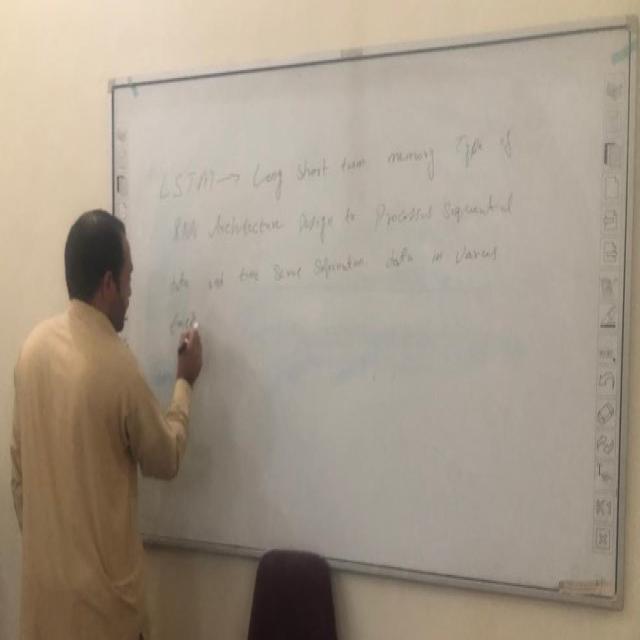 LSTM → Long Short term memory Type of
RNN Architecture Design to Processes Sequential
data and time Same Separation data in Varius